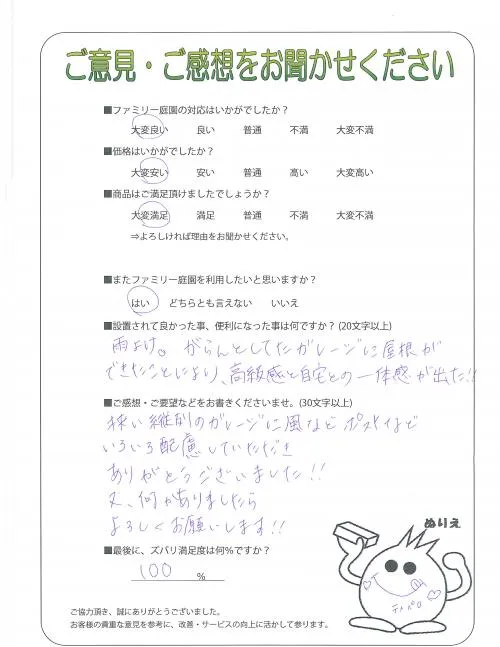 ご意見・ご感想をお聞かせください
■ファミリー庭園の対応はいかがでしたか？
大変良い 良い 普通 不満 大変不満
■価格はいかがでしたか？
大変安い 安い 普通 高い 大変高い
■商品はご満足頂けましたでしょうか？
大変満足 満足 普通 不満 大変不満
⇒よろしければ理由をお聞かせください。
■またファミリー庭園を利用したいと思いますか？
はい どちらとも言えない いいえ
■設置されて良かった事、便利になった事は何ですか？(20文字以上)
雨よけ。がらんとしてたガレージに屋根が
できたことにより、高級感と自宅との一体感が出た!!
■ご感想・ご要望などをお書きくださいませ。(30文字以上)
狭い縦列のガレージに風など ポストなど
いろいろ配慮していただき
ありがとうございました!!
又、何かありましたら
よろしくお願いします!!
ぬりえ
■最後に、ズバリ満足度は何％ですか？
100 %
ご協力頂き、誠にありがとうございました。
お客様の貴重な意見を参考に、改善・サービスの向上に活かして参ります。